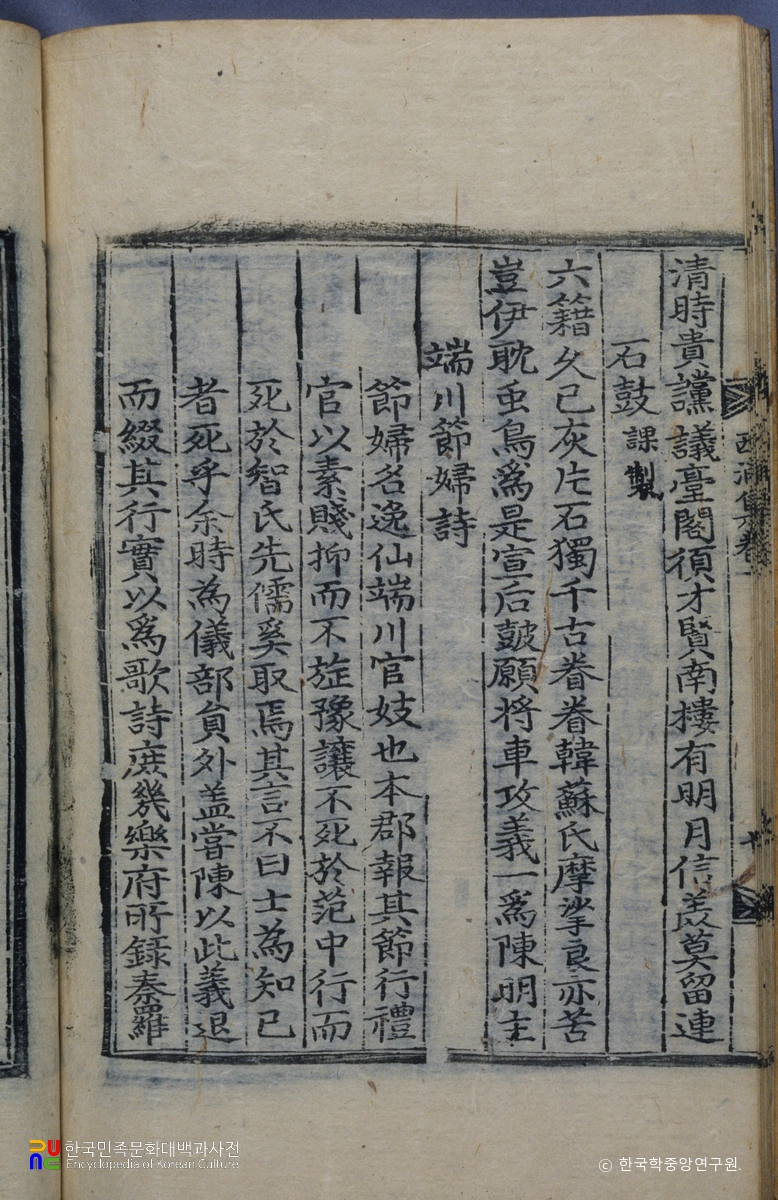 清時貴讜議臺閣須才賢南樓有明月信美莫留連
石鼓 課製
六籍久已灰片石獨千古眷眷韓蘇氏摩挲良亦苦
豈伊耽虫鳥爲是宣后鼓願將車攻義一爲陳明主
端川節婦詩
節婦名逸仙端川官妓也本郡報其節行禮
官以素賤抑而不㫌豫讓不死於范中行而
死於智氏先儒奚取焉其言不曰士為知己
者死乎余時為儀部員外盖嘗陳以此義退
而綴其行實以爲歌詩庶幾樂府所錄秦羅
西浦集卷
한국민족문화대백과사전
Encyclopedia of Korean Culture
© 한국학중앙연구원